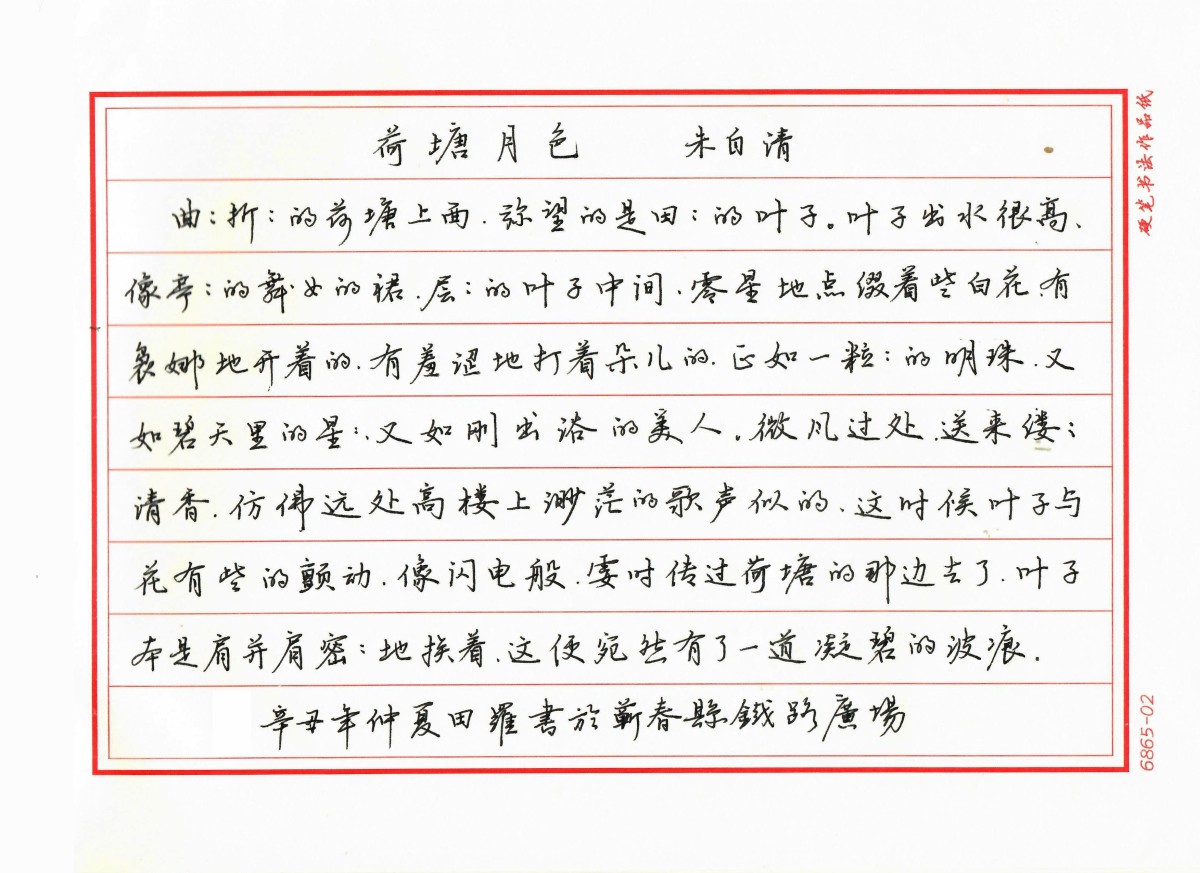 荷塘月色 朱自清
曲:折:的荷塘上面、弥望的是田:的叶子。叶子出水很高、
像亭:的舞女的裙、层:的叶子中间、零星地点缀着些白花、有
袅娜地开着的、有羞涩地打着朵儿的、正如一粒:的明珠、又
如碧天里的星:、又如刚出浴的美人。微风过处、送来缕:
清香、仿佛远处高楼上渺茫的歌声似的、这时候叶子与
花有些的颤动、像闪电般、霎时传过荷塘的那边去了、叶子
本是肩并肩密:地挨着、这便宛然有了一道凝碧的波痕.
辛丑年仲夏田羅書於蘄春縣鐵路廣場
硬笔书法作品纸
6865-02